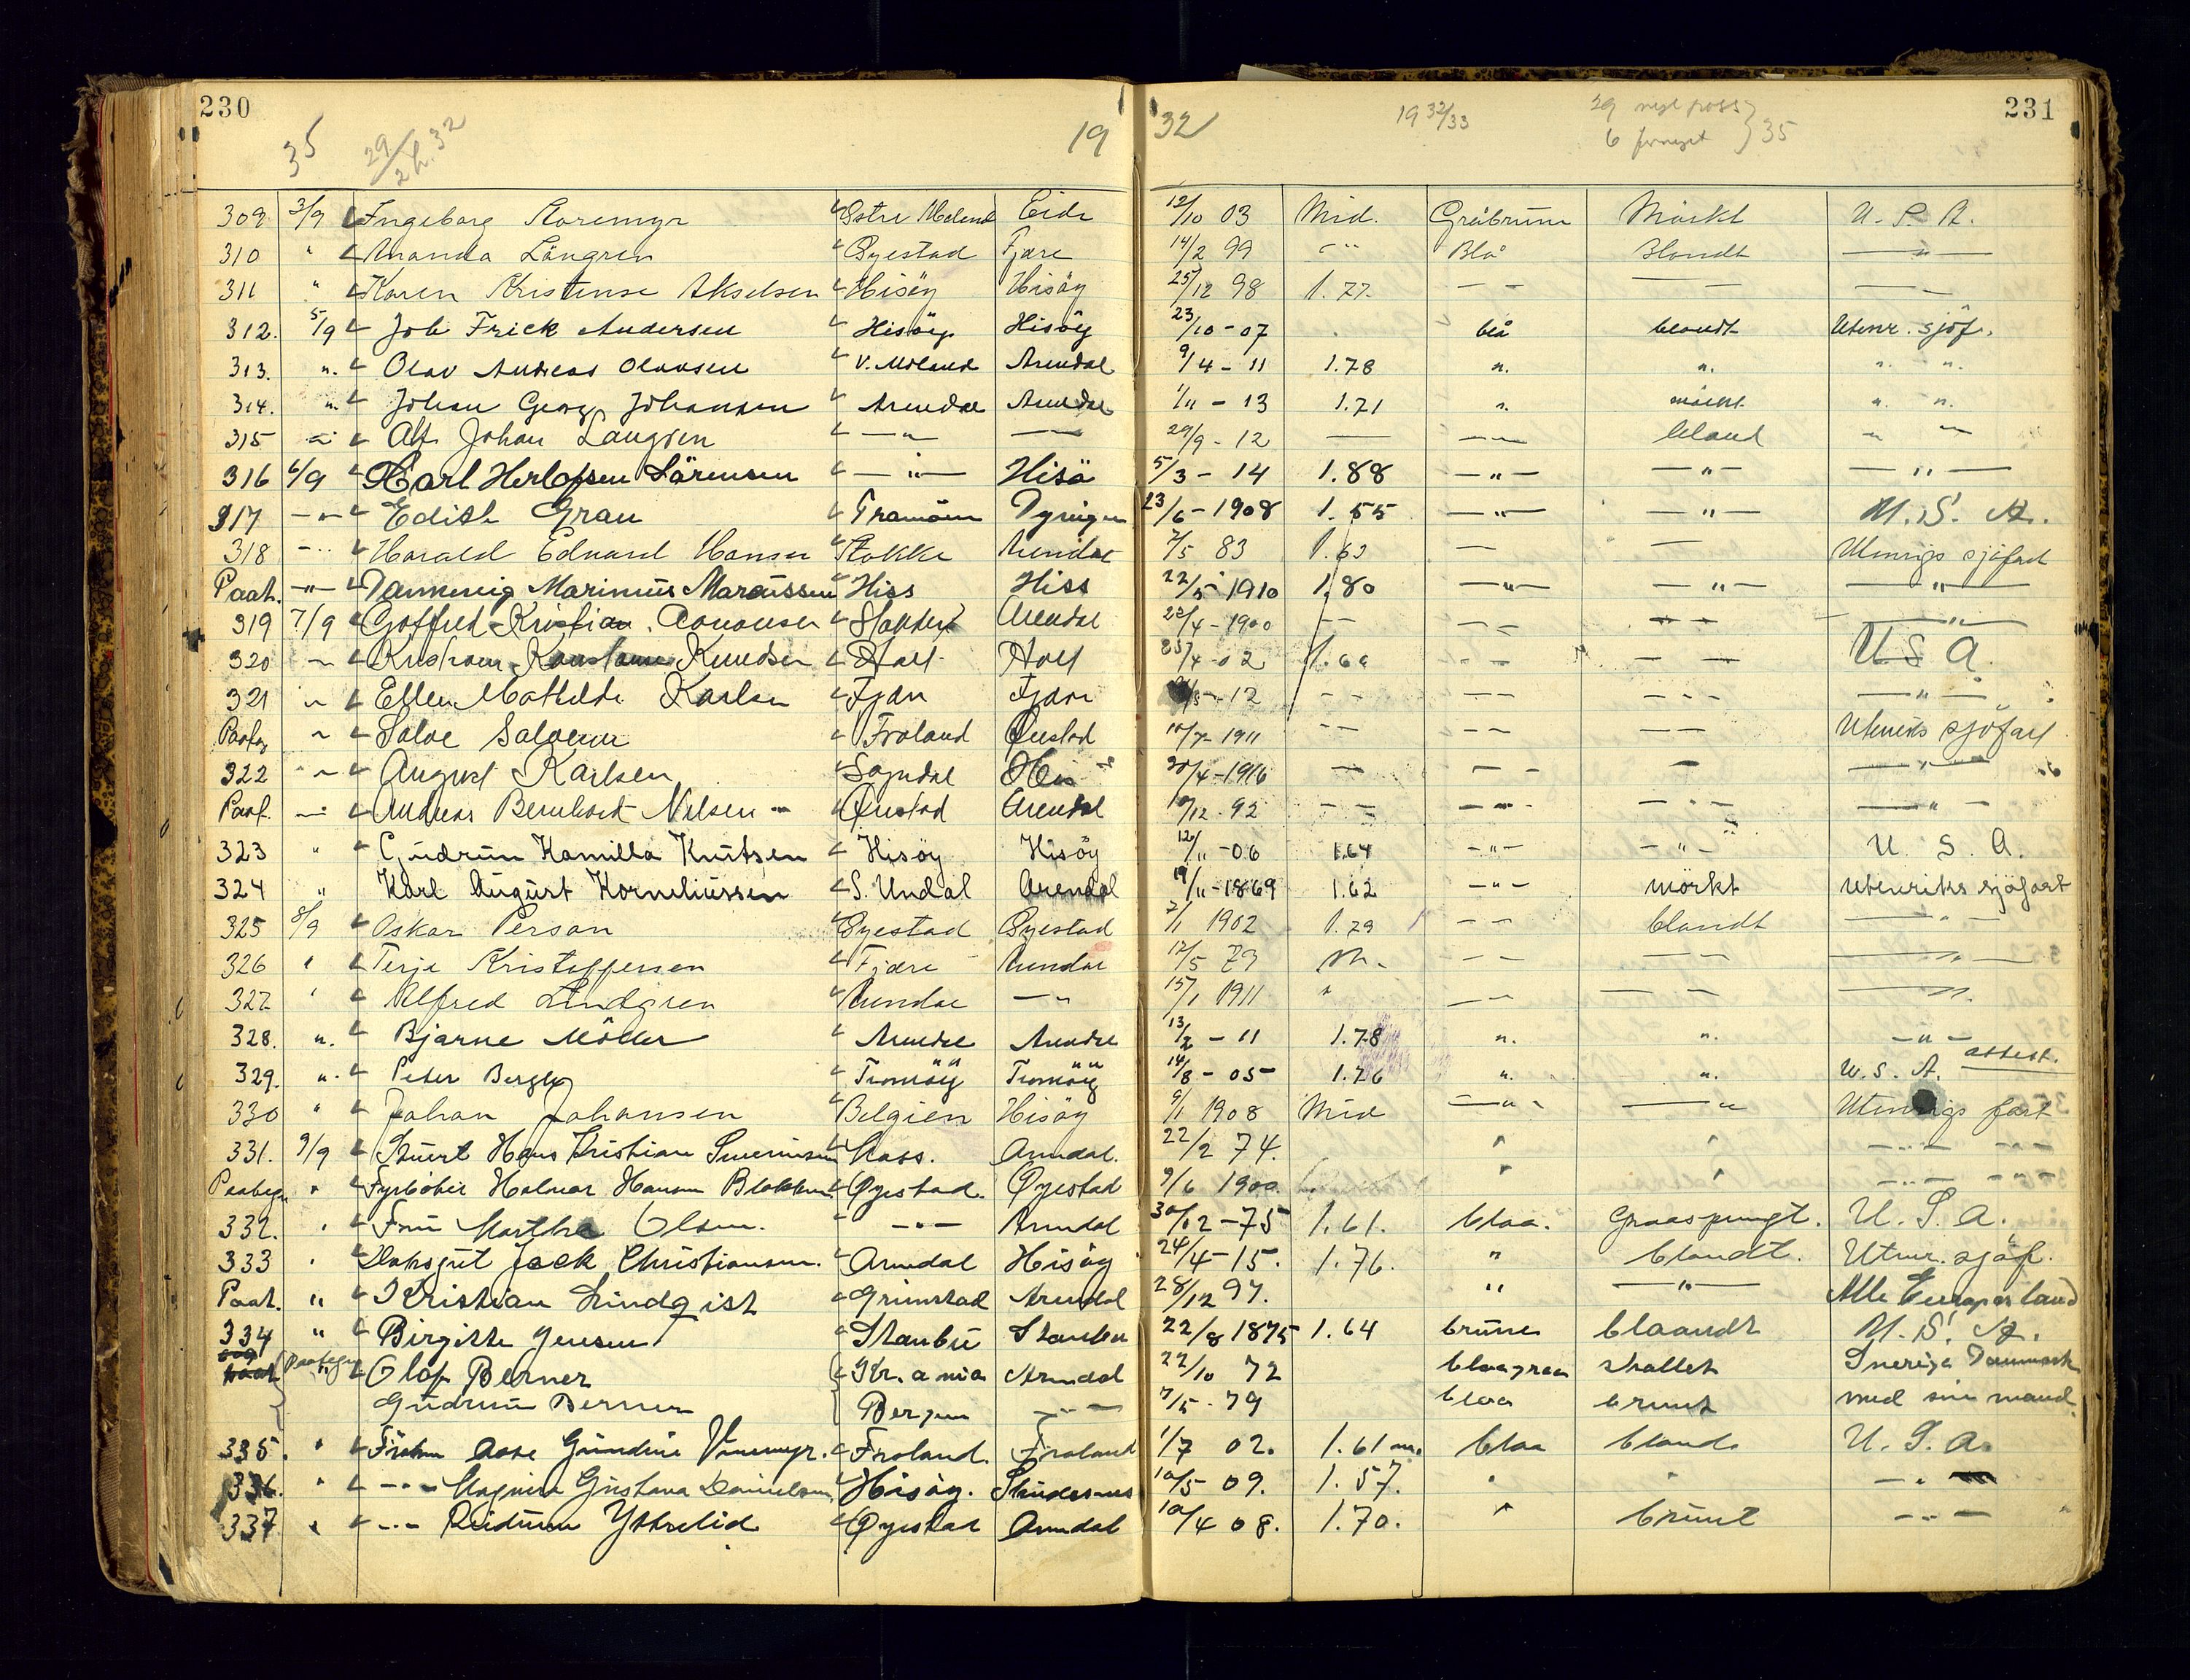 230
35 29/2 h. 32
19
32
19 32/33
29 nyt pass
6 fornyet } 35
231
309 3/9 Ingeborg Östre Eide 12/10 03 Mid. Gråbrune Mörkt U. S. A.
310 " Amanda Långren Öyestad Fjære 14/2 99 - " Blå Blondt — " —
311 " Karen Kristense Akselsen Hisöy Hisöy 25/12 98 1.77. — — — — —
312. 5/9 Joh Frick Andersen Hisöy Hisöy 23/10 - 07 blå blondt Utenr. sjöf.
313. ". Olav Andreas Olavsen V. Moland Arendal 9/4 - 11 1.78 ". ". ". ".
314. ". Johan Georg Johansen Arendal Arendal 1/11 - 13 1.71 ". mörkt ". ".
315 " Alf Johan Langren — " — — 29/9 - 12 — — — blond " "
316 6/9 Karl Herlofsen Sörensen — " — Hisö 5/3 - 14 1.88 — " — — " — — " —
317 — " — Edith Grau Tromöen 23/6 - 1908 1.55 — " — — " — U. S. A.
318 - " Harald Edvard Hansen Stokke Arendal 7/5 83 1.63 — — Utenrigs sjöfart
Paat. — " — Marinius Marcussen Hiss Hiss 22/5 1910 1,80 — " — — " — — " —
319 7/9 Gotfred Kristian Aanonsen Arendal 22/4 - 1900 - - - - - - — " —
320 " Knudsen Holt Holt 25/4 - 02 1.60 - - - - U S A.
321 " Ellen Mathilde Karlsen Fjære Fjære - 12 - - - - - - — " —
Paateg " Salve Salvesen Froland Öiestad 10/7 1911 - - - - - - Utenriks sjöfart
322 " August Karlsen Sogndal His 20/4 - 1916 — - - — — " —
Paat. — Andreas Bernhard Nilsen Öiestad Arendal 10/12 - 92 - - - " - - " - — " —
323 " Gudrun Kamilla Knutsen Hisöy Hisöy 12/11 - 06 1.64 - " - - " - U. S. A.
324 " Karl August Korneliussen S. Undal Arendal 19/11 - 1869 1.62 - " - mörkt utenriks sjöfart
325 8/9 Oskar Person Öyestad Öyestad 2/1 1902 1.79 - - blondt — " —
326 " Terje Kristoffersen Fjære Arendal 17/5 79 M. - - - - — " —
327 " Alfred Lindgren Arendal — " 15/1 1911 " - - - - — " —
328. ". Bjarne Möller Arendal Arendal 13/2 - 11 1.78 ". ". - " -
329. ". Peter Bergh Tromöy Tromöy 14/8 - 05 1.76 ". ". U. S. A. attest.
330 " Johan Johansen Belgien Hisöy 9/1 1908 Mid — " - — " Utenrigs fart
331. 9/9 Stuert Hans Kristian Arendal. 22/2 74. " " - " - - " -
Paategn " Fyrböter Halvor Hansen Blakken Öyestad. Öyestad 9/6 1900. " " - " - - " -
332. " Fru Martha Olsen. — " — Arendal 30/12 - 75 1.61. blaa. Graasprengt. U. S. A.
333 " Jack Christiansen. Arendal Hisöy 24/4 - 15. 1.76. " blondt. Utenr. sjöf.
Paat. " Kristian Lindqist Grimstad Arendal 28/12 97. " — " — Alle Europas land
334 " Birgitte Jensen Staubö Staubö 22/8 1875 1.64 brune blaandt U. S. A.
Paategn Olof Berner Kr. ania Arendal 22/10 72 blaagraa skallet Sverige Danmark
Gudrun Berner Bergen — " — 7/5 - 79 blaa brunt med sin mand.
335. " Fröken Aase Gundine Froland. Froland 1/7 02. 1.61 m. blaa blond. U. S. A.
336. " - " - Magnia Gustava Danielsen Hisöy. Skudesnes 10/5 09. 1.57. " " - " -
337 " - " - Reidunn Ystelid Öyestad Arendal 10/4 08. 1.70. " brunt - " -